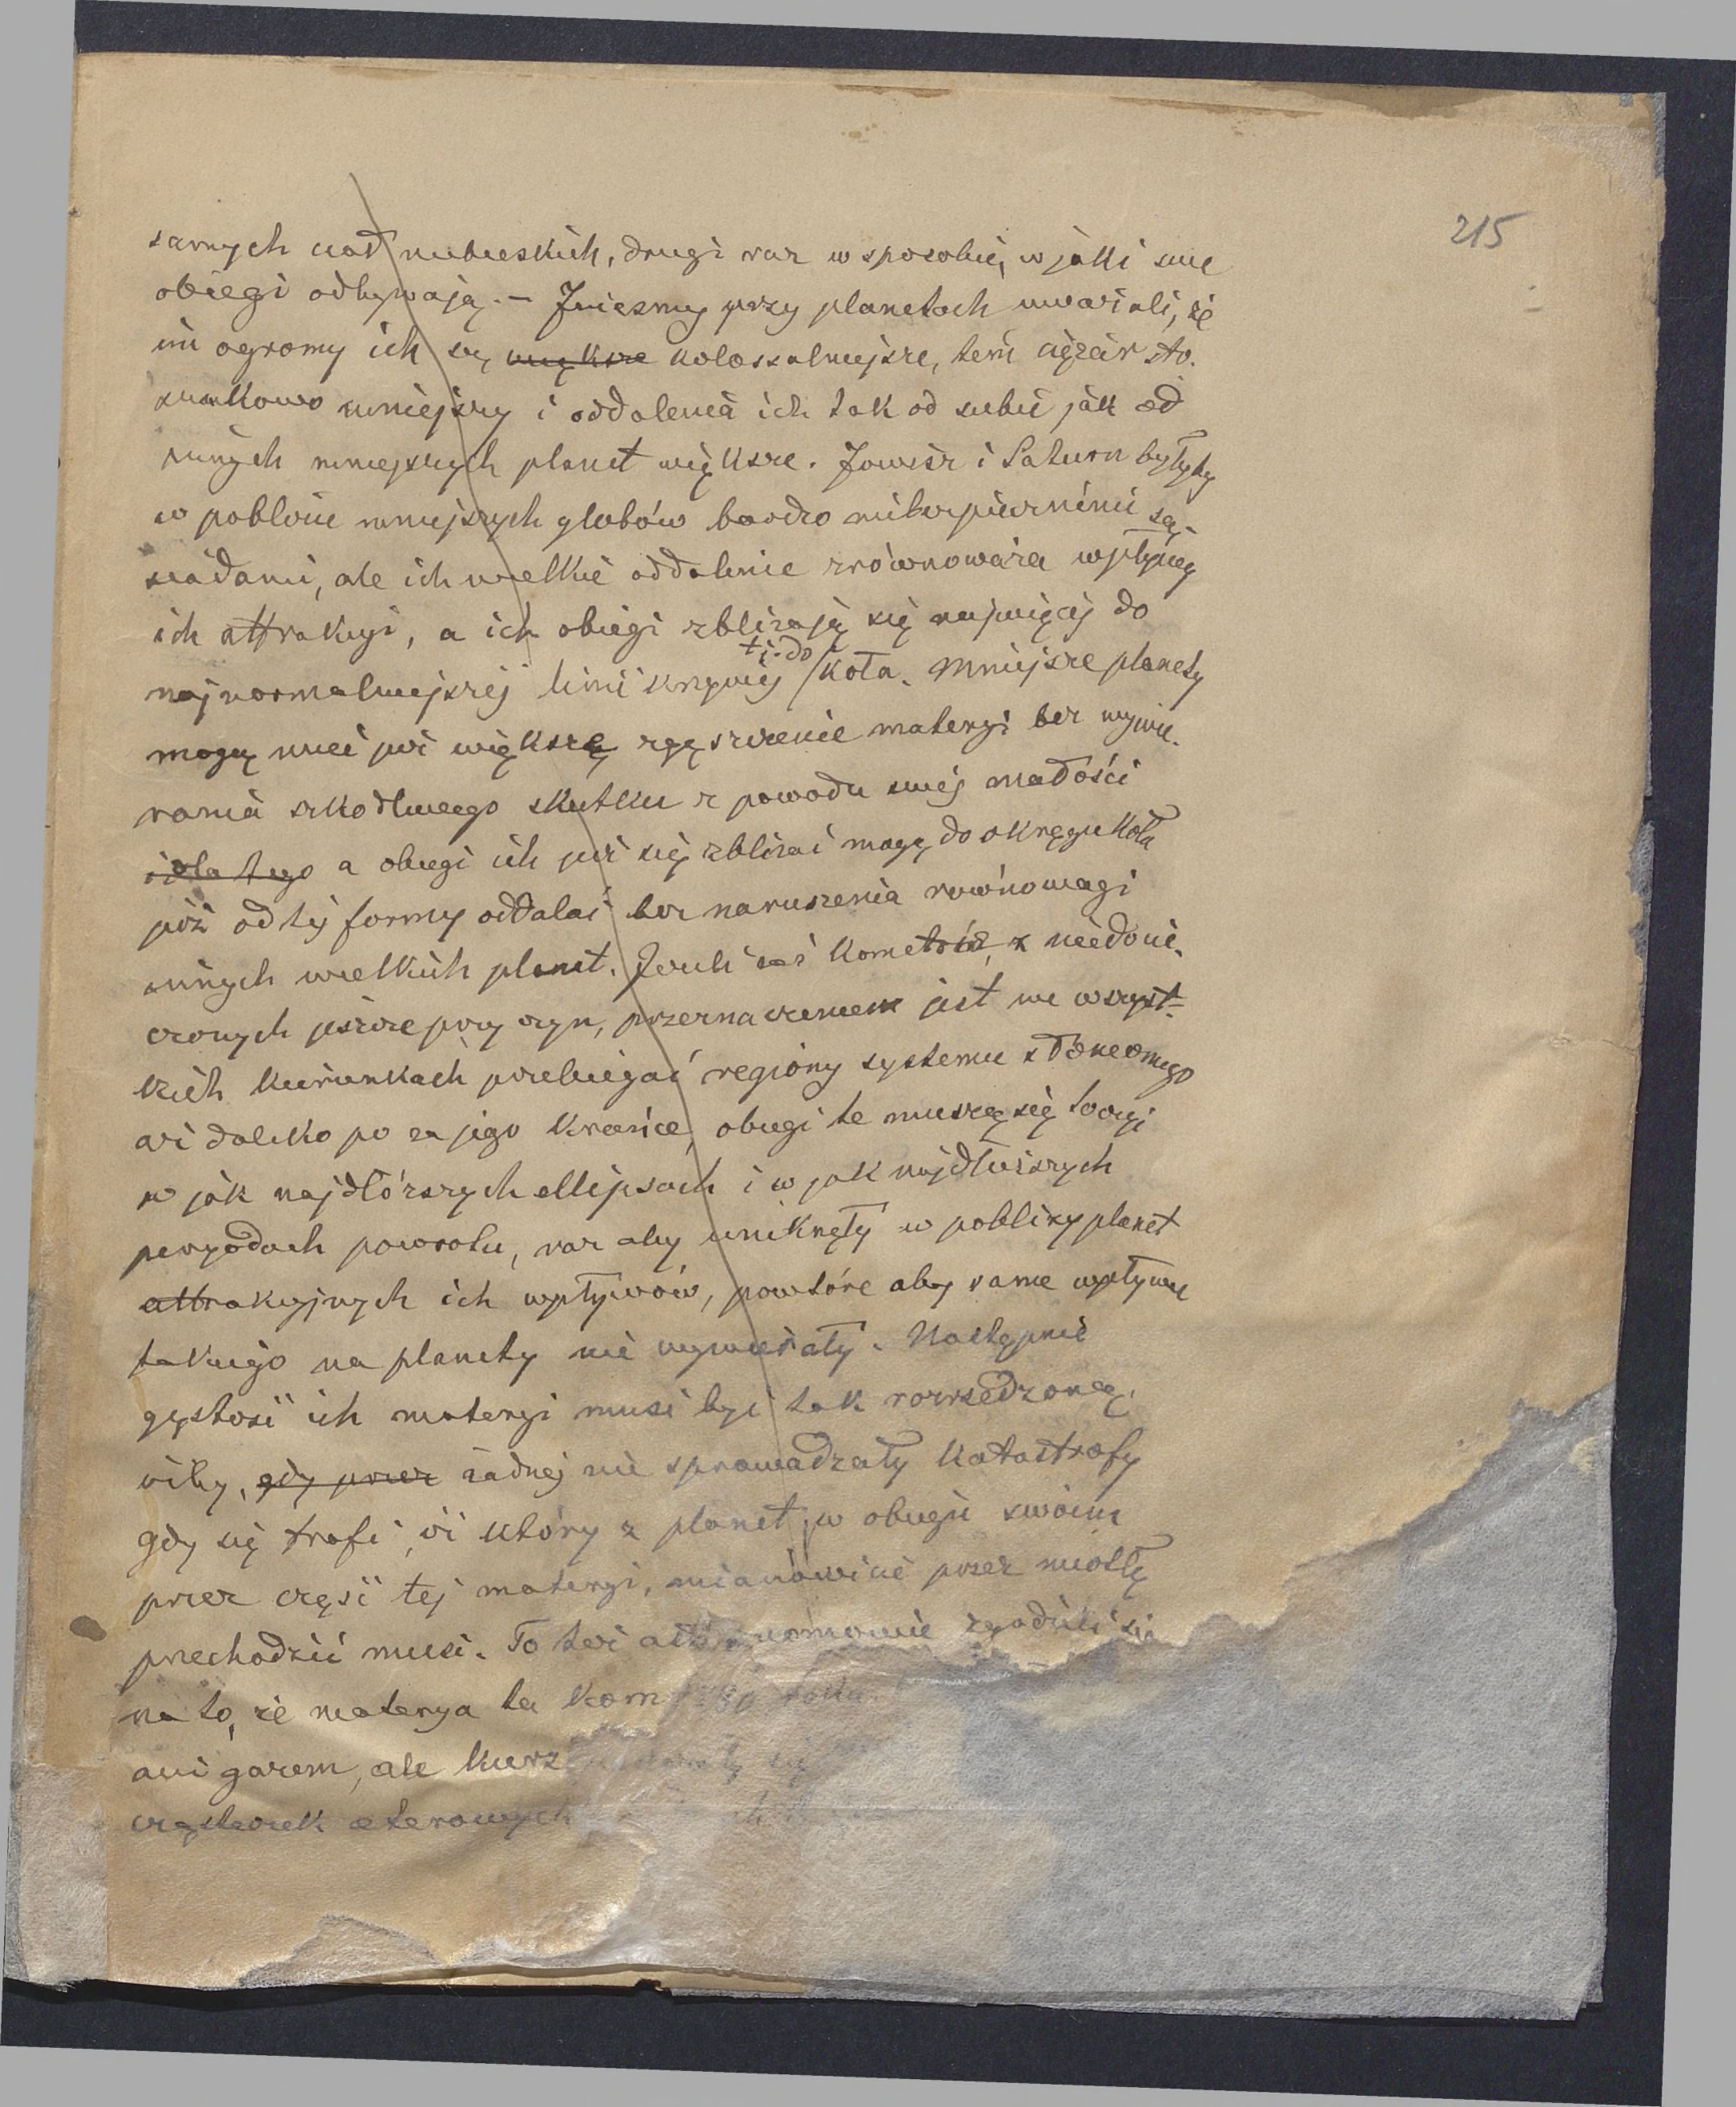 215
samych ciał niebieskich, drugi raz w sposobie, w jakki swe
obiegi odbywają. – Jużeśmy przy planetach uważali, że
im ogromy ich są większe kolossalniejsze, tem ciężar sto-
sunkowo mniejszy i oddalenia ich tak od siebie jak od
innych mniejszych planet większe. Jowisz i Saturn byłyby
w pobliżu mniejszych globów bardzo niebezpiecznimi są-
siadami, ale ich wielkie oddalenie zrównoważa wpływy
ich attrakcyi, a ich obiegi zbliżają się najwięcej do
najnormalniejszej linii krzywej t.j. do koła. Mniejsze planety
mogą mieć już większe zgęszczenie materyi bez wywie-
rania szkodliwego skutku z powodu swej małości
i dla tego a obiegi ich już się zbliżać mogą do okręgu koła
już od tej formy oddalać bez naruszenia równowagi
innych wielkich planet. Jeżeli zaś kometów, z niedocie-
czonych jeszcze przyczyn, przeznaczeniem jest we wszyst-
kich kierunkach przebiegać regiony systemu słonecznego
aż daleko po za jego krańce, obiegi te muszą się toczyć
w jak najdłóższych ellipsach i w jak najdłuższych
peryodach powrotu, raz aby uniknęły w pobliży planet
attrakcyjnych ich wpływów, powtóre aby same wpływu
takiego na planety nie wywierały. Następnie
gęstość ich materyi musi być tak rozrzedzoną,
iżby, gdy przez żadnej nie sprowadzały katastrofy
gdy się trafi, iż któryś z planet w obiegu swoim
przez część tej materyi, mianowicie przez miotłę
przechodzić musi. To też astronomowie zgodzili się
na to, że materya ta kom
ani gazem, ale kurz
cząsteczek eterowych